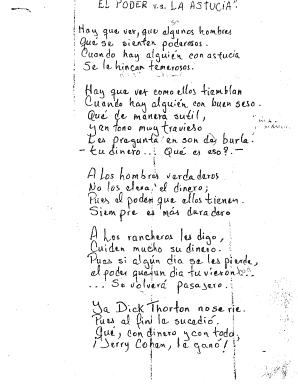 EL PODER v.s. LA ASTUCIA".
Hay que ver, que algunos hombres
Que se sienten poderosos.
Cuando hay alguien con astucia
Se le hincan temerosos.
Hay que ver como ellos tiemblan
Cuando hay alguien con buen seso.
Que de manera sutil,
y en tono muy travieso
Les pregunta en son de burla.
- tu dinero... Qué es eso?.-
A Los hombres verdaderos
No los eleva, el dinero;
Pues el poder que ellos tienen.
Siempre es más duradero
A Los rancheros les digo,
Cuiden mucho su dinero.
Pues si algún día se les pierde,
el poder que un día tuvieron...
... Se volverá pasajero.
Ya Dick Thorton no se rie.
Pues al fin la sucedió.
Que, con dinero y con todo,
¡Jerry Cohen, le ganó!